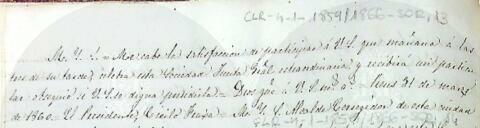 CLR-4-1-1859/1866-SOR, 13
M. Y. S. = Me cabe la satisfaccion de participar á V.S. que mañana á las
doce de su tarde, celebra esta Sociedad Junta Gral. extraordinaria y recibirá un particu-
lar obsequio si V.S. se digna presidirla = Dios gue. á V.S. ms. as. 31 de marzo
de 1860. El Presidente, Cirilo = M. Y. S. Alcalde Corregidor de esta ciudad